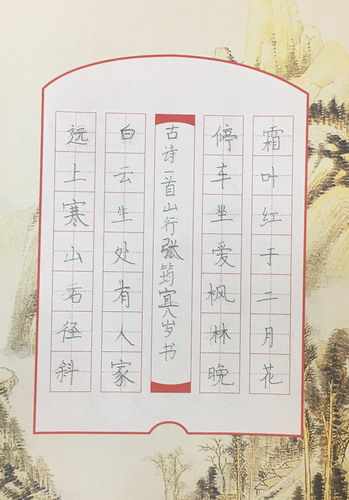 远上寒山石径斜
白云生处有人家
古诗一首山行张筠寅八岁书
停车坐爱枫林晚
霜叶红于二月花